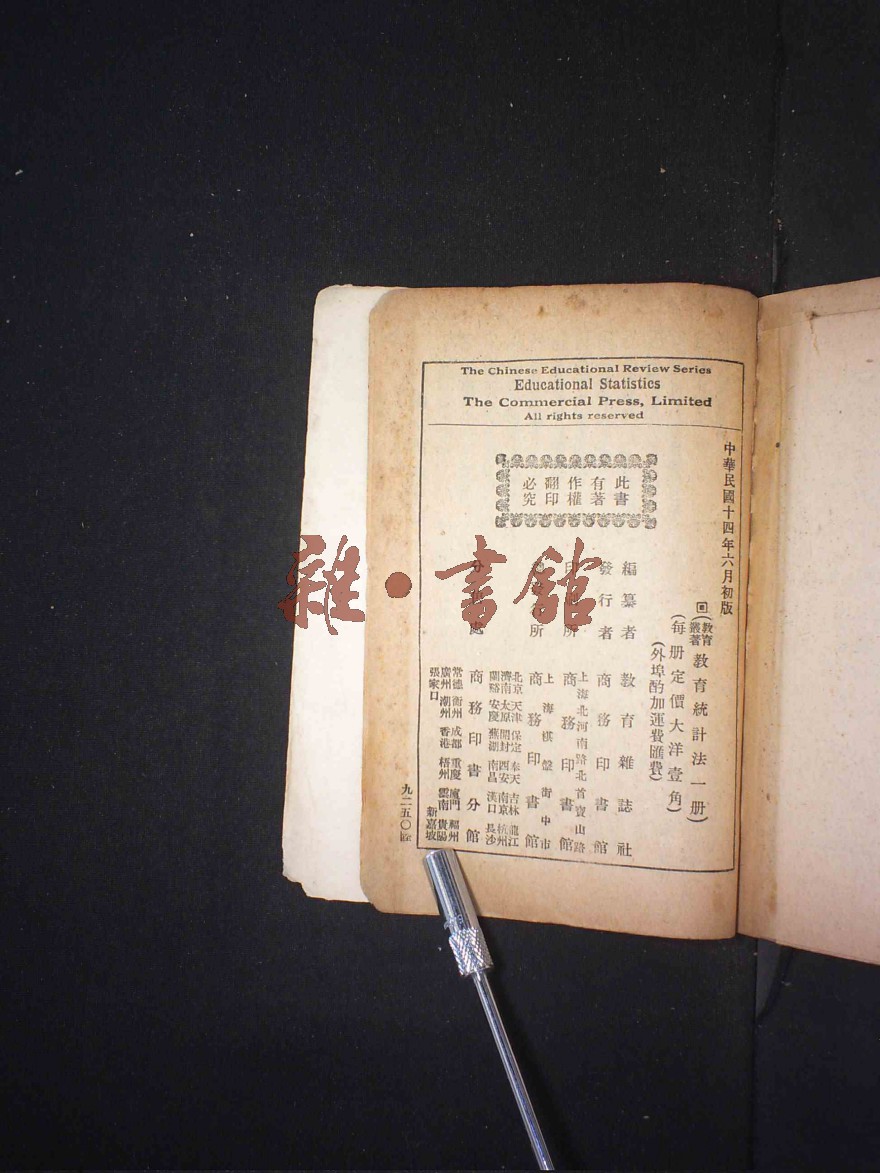 The Chinese Educational Review Series
Educational Statistics
The Commercial Press, Limited
All rights reserved
此書
有著
作權
翻印
必究
中華民國十四年六月初版
(教育叢著 教育統計法一册)
(每册定價大洋壹角)
(外埠酌加運費匯費)
編纂者 教育雜誌社
發行者 商務印書館
印刷所 上海北河南路北首寶山路 商務印書館
發行所 上海棋盤街中市 商務印書館
分處 北京 天津 保定 奉天 吉林 龍江
濟南 太原 開封 西安 南京 杭州
蘭谿 安慶 蕪湖 南昌 漢口 長沙
商務印書分館
常德 衡州 成都 重慶 廈門 福州
廣州 潮州 香港 梧州 雲南 貴陽
張家口 新嘉坡
九二五〇
雜·書館